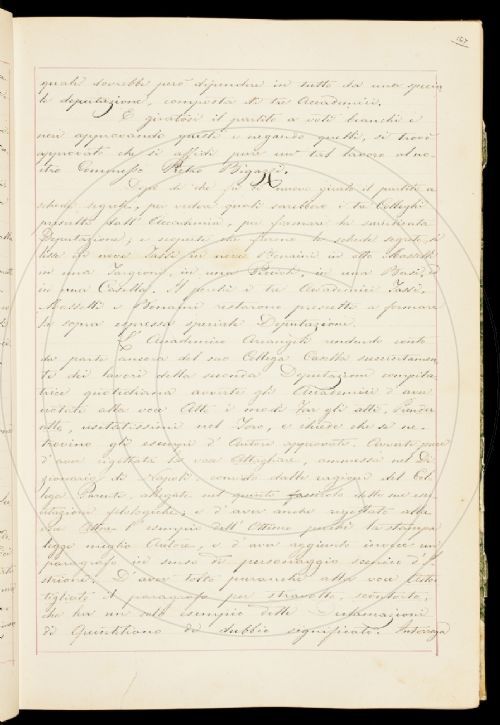 167
quale dovrebbe però dipendere in tutto da una specia
le deputazione, composta di tre Accademici.
E giratosi il partito a voti bianchi e
neri approvando questi e negando quelli, si trovò
approvato che si affidi pure un tal lavoro al no
stro Commesso Pietro Bigazzi.
Dopo di che fu di nuovo girato il partito a
schede segrete, per vedere quali sarebbero i tre Colleghi
prescelti dall'Accademia, per formare la
Deputazione; e seguito che furono le schede segrete, si
in nove Tassi, in nove Bonaini in otto Masselli
in una Targioni, in una in una Basi, e
in una Casella. Il perché i tre Accademici Tassi,
Masselli e Bonaini restarono prescelti a formare
la sopra espressa speciale Deputazione.
L'Accademico Arcangeli rendendo conto
da parte ancora del suo Collega Casella
dei lavori della seconda Deputazione compila
trice quotidiana avverte gli Accademici d'aver
notati alla voce Atti i modi Far gli atti, Prender
atto, usitatissimi nel Foro, e chiede che si ne
trovino gli esempi d'Autore approvato. Avverte pure
d'aver rigettata la voce Attagliare, ammessa nel Di
zionario di Napoli dalle ragioni del Col
lega Parenti, allegate nel quinto fascicolo delle sue eser
citazioni filologiche; e d'aver anche rigettato alla
voce l'esempio dell'Ottimo perché la stampa
legge meglio Autore, e d'aver aggiunto invece un
paragrafo in senso di personaggio scenico d'I
strione. D'aver tolto puranche alla voce
il paragrafo per stravolto, scontorto,
che ha un solo esempio delle Declamazioni
di Quintiliano di dubbio significato.